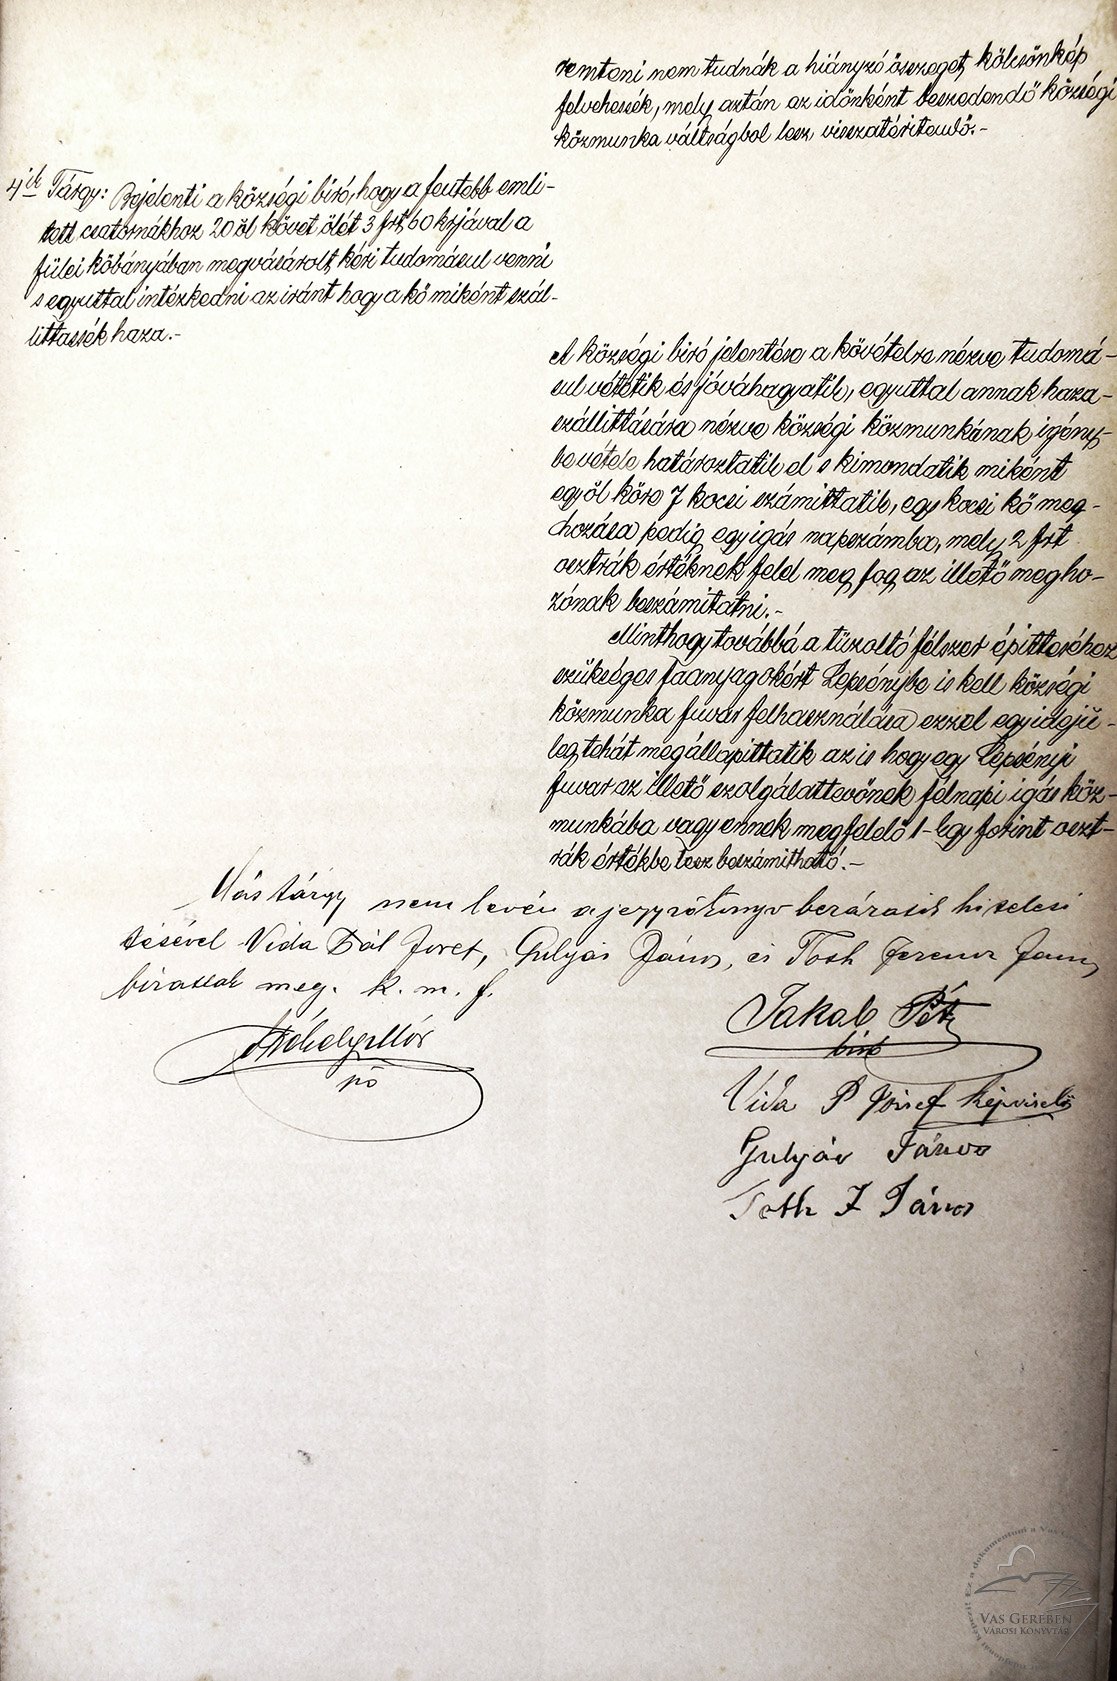 remteni nem tudnák a hiányzó összeget, kölcsönkép
felvehessék, mely aztán az időnként beszedendő községi
közmunka váltságbol lesz visszatéritendő.-
4ik Tárgy: Bejelenti a községi biró, hogy a fentebb emli-
tett csatornákhoz 20 öl követ ölét 3 frt 60 krjával a
fülei kőbányában megvásárolt, kéri tudomásul venni
s egyuttal intézkedni az iránt hogy a kő miként szál-
littassék haza.-
A községi biró jelentése a kővételre nézve tudomá-
sul vétetik és jóváhagyatik, egyuttal annak haza-
szállittására nézve községi közmunkának igény-
bevétele határoztatik el s kimondatik miként
egy öl kőre 7 kocsi számittatik, egy kocsi kő meg-
hozása pedig egy igás napszámba, mely 2 frt
osztrák értéknek feld meg fog az illető megho-
zónak beszámitatni.-
Minthogy továbbá a tüzoltó félszer épittéséhez
szükséges faanyagokért Lepsénybe is kell községi
közmunka fuvar felhasználása ezzel egyidejü-
leg tehát megállapittatik az is hogy egy Lepsényi
fuvar az illető szolgálattevőnek félnapi igás köz-
munkába vagy ennek megfelelő 1- Egy forint oszt-
rák értékbe lesz beszámitható.-
Más tárgy nem levén a jegyzőkönyv bezárasik hitelesi
tésével Vida Pál Jozef, Gulyás János, és Toth Ferencz János
bizattak meg. k. m. f.
Jakab Pét
biró
jző
Vida P József képviselő
Gulyás János
Toth F János
VAS GEREBEN
VÁROSI KÖNYVTÁR